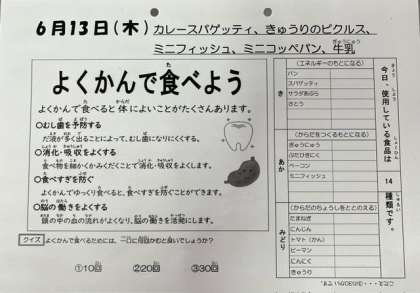 6月13日(木) カレースパゲッティ、きゅうりのピクルス、
ミニフィッシュ、ミニコッペパン、牛乳
よくかんで食べよう
よくかんで食べると体によいことがたくさんあります。
○むし歯を予防する
だ液が多く出ることによって、むし歯になりにくくする。
○消化・吸収をよくする
食べ物を細かくかみくだくことで消化・吸収をよくします。
○食べすぎを防ぐ
よくかんでゆっくり食べると、食べすぎを防ぐことができます。
○脳の働きをよくする
頭の中の血の流れがよくなり、脳の働きを活発にします。
クイズ よくかんで食べるためには、一口に何回かむと良いでしょうか?
①10回 ②20回 ③30回
今日、使用している食品は
14
種類です。
き
(エネルギーのもとになる)
パン
スパゲッティ
サラダあぶら
さとう
あか
(からだをつくるもとになる)
ぎゅうにゅう
ぶたひきにく
ベーコン
ミニフィッシュ
みどり
(からだのちょうしをととのえる)
たまねぎ
にんじん
トマト(かん)
ピーマン
にんにく
きゅうり